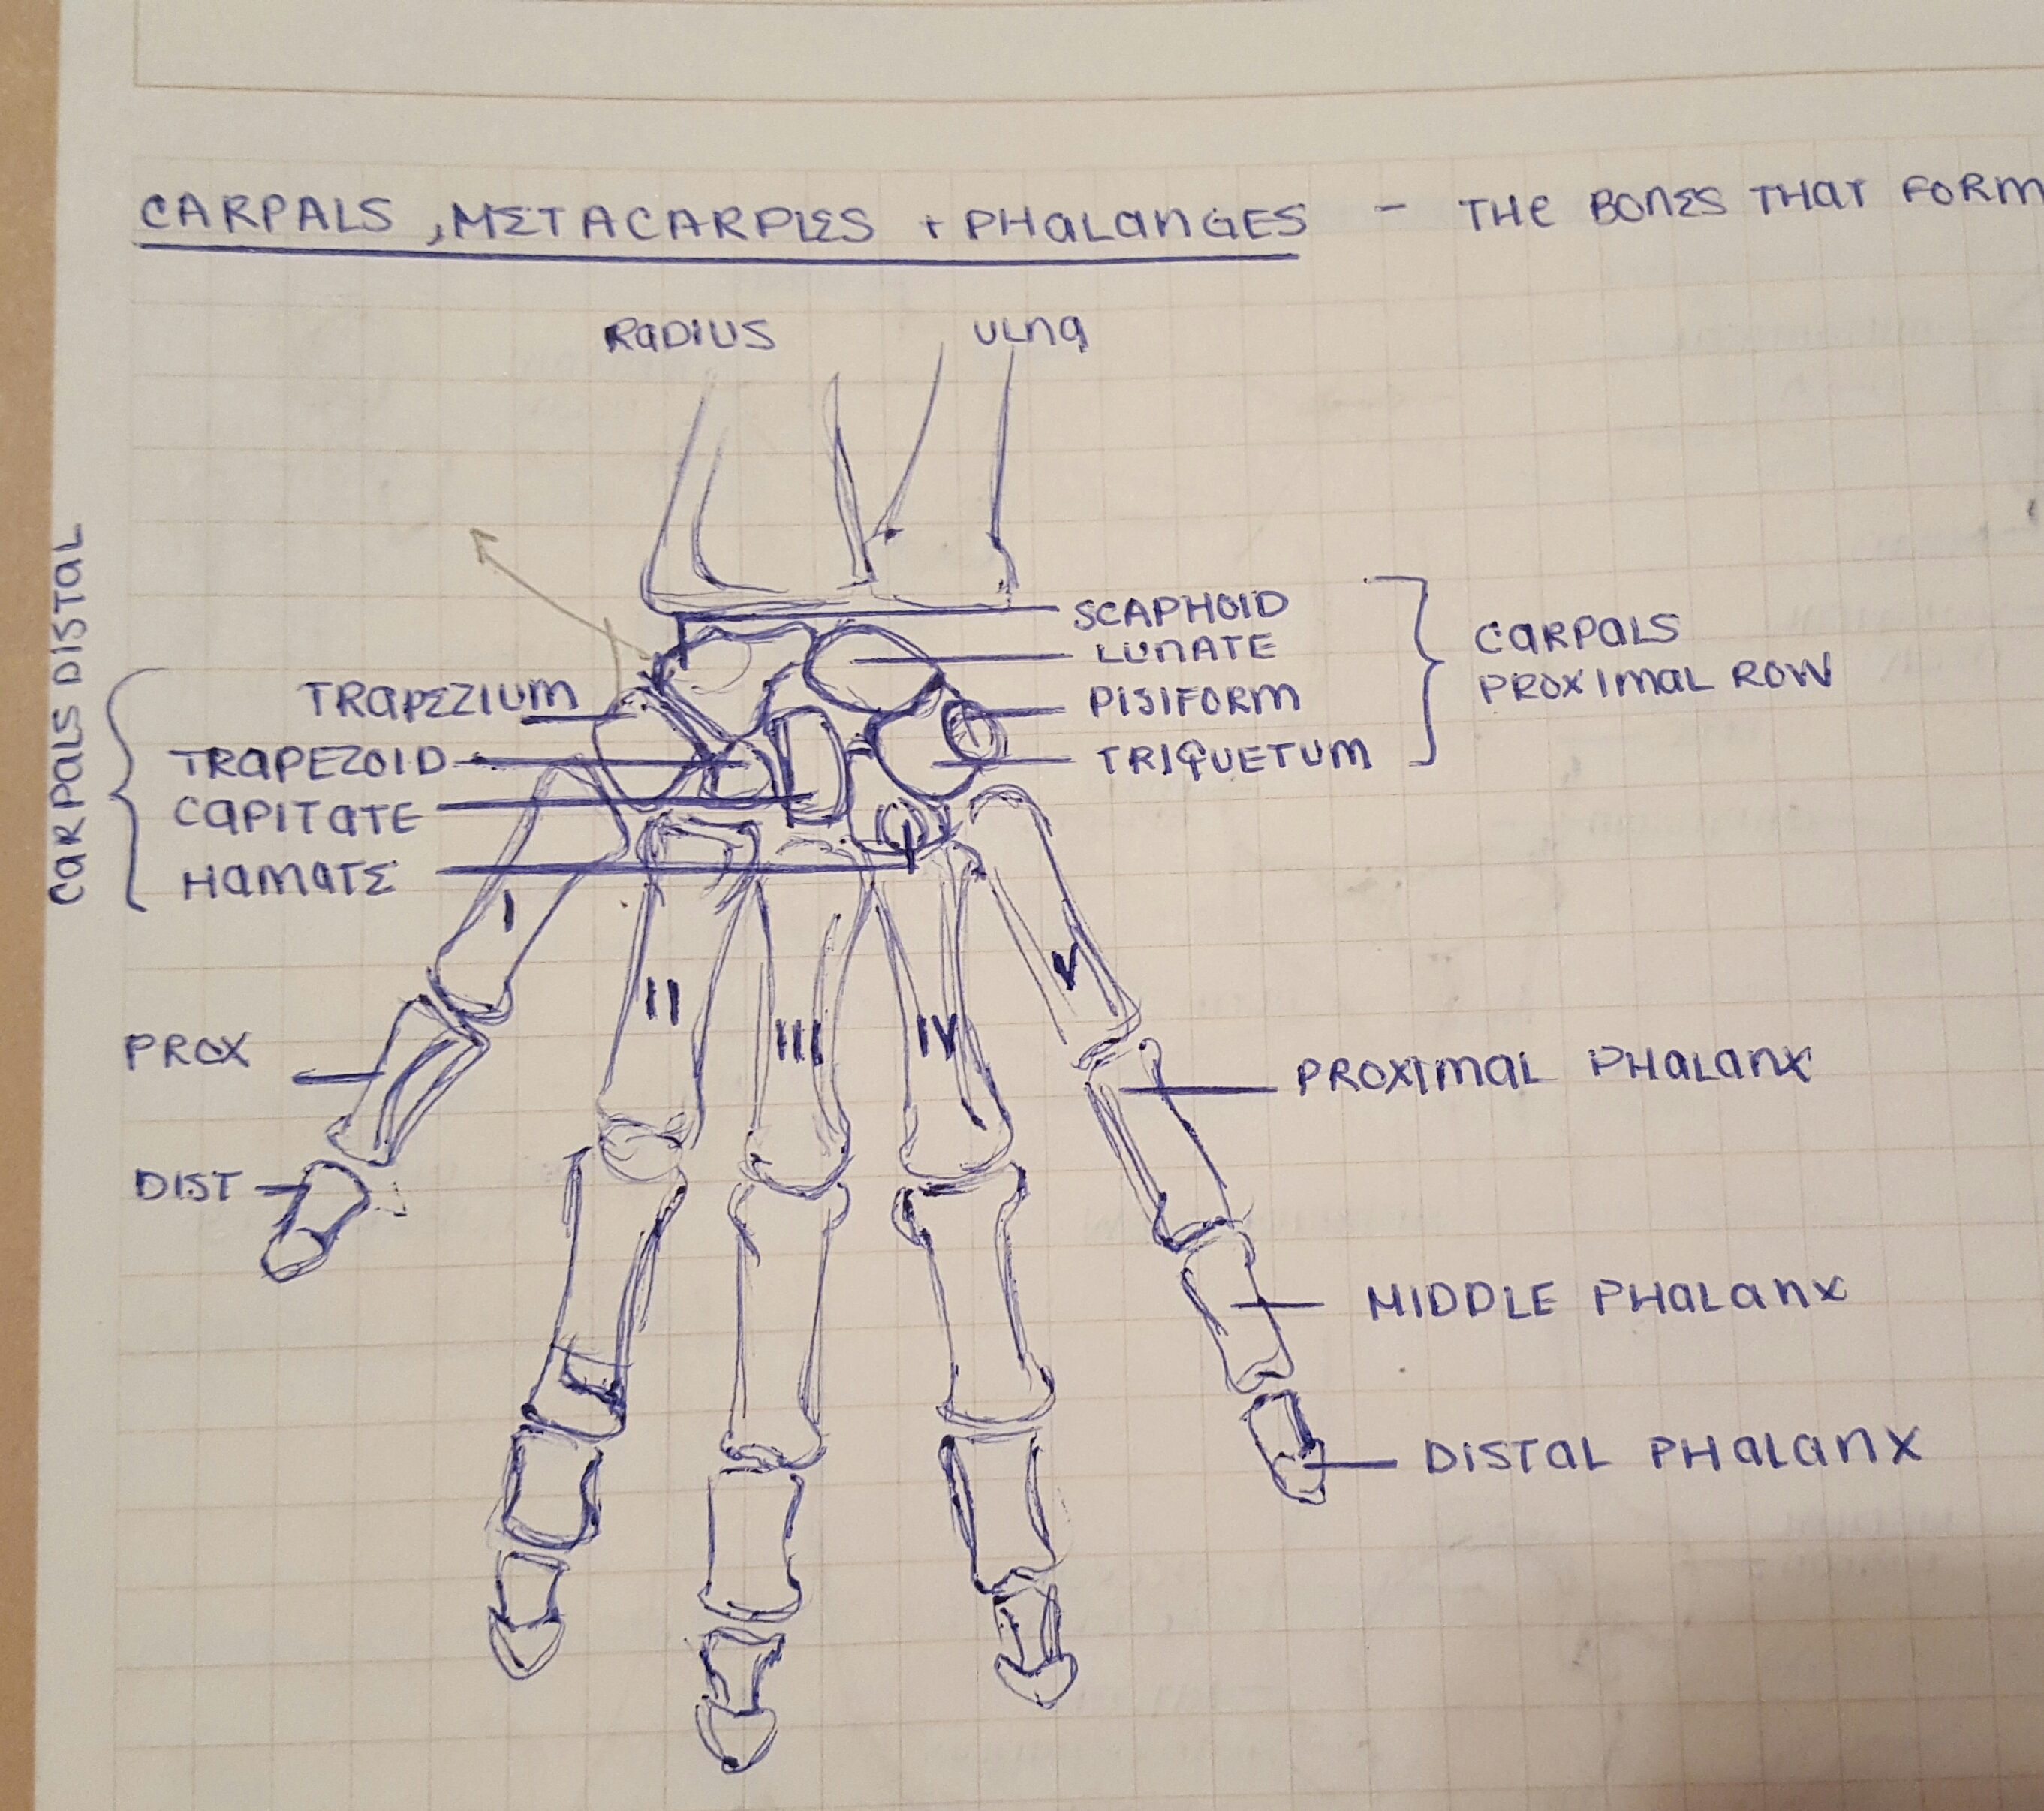 CARPALS, METACARPLES + PHALANGES - THE BONES THAT FORM
RADIUS
ULNA
CARPALS DISTAL
SCAPHOID
LUNATE
PISIFORM
TRIQUETUM
CARPALS
PROXIMAL ROW
TRAPEZIUM
TRAPEZOID
CAPITATE
HAMATE
I
II
III
IV
V
PROX
DIST
PROXIMAL PHALANX
MIDDLE PHALANX
DISTAL PHALANX